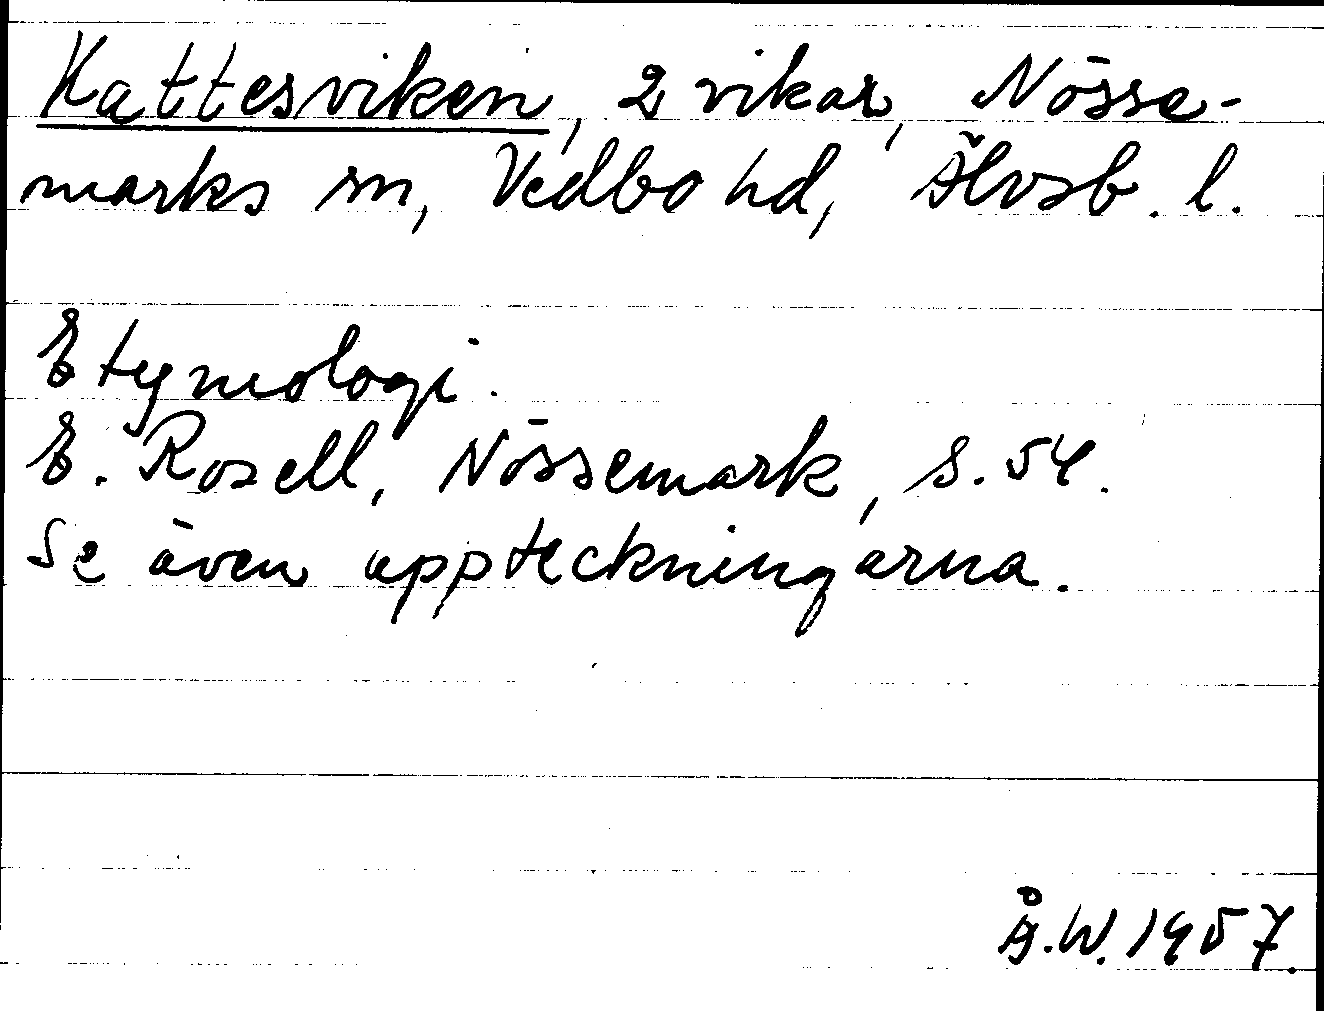 Kattesviken, 2 vikar, Nösse-
marks sn, Vedbo hd, Älvsb. l.
Etymologi.
E. Rosell, Nössemark, s. 54.
Se även uppteckningarna.
Å.W. 1957.